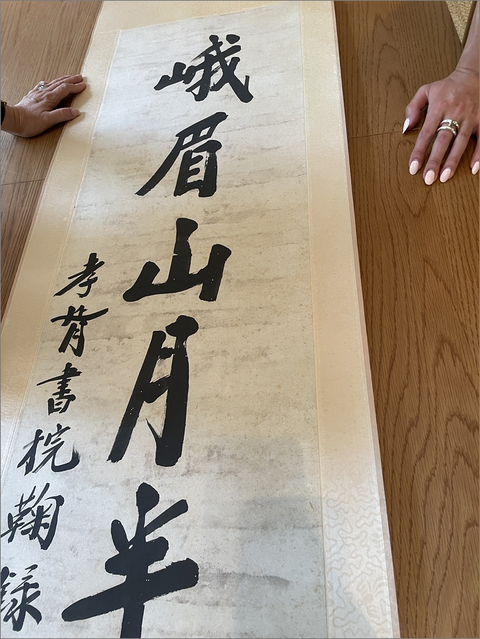 峨眉山月半
孝胥書梡鞠録